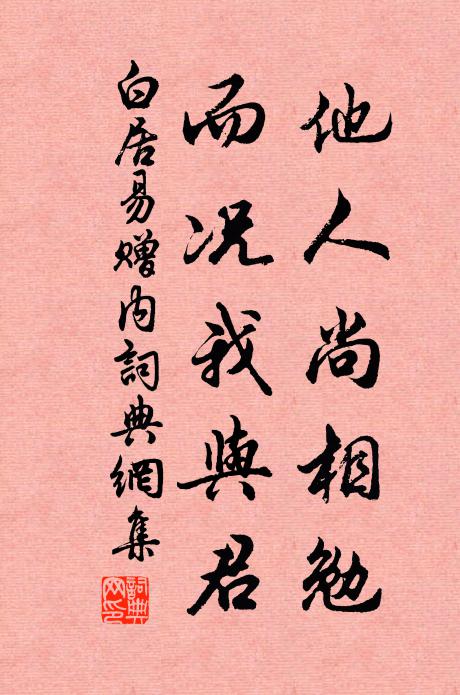 他人尚相勉
而况我與君
白居易赠内詞典網集
詞典網印